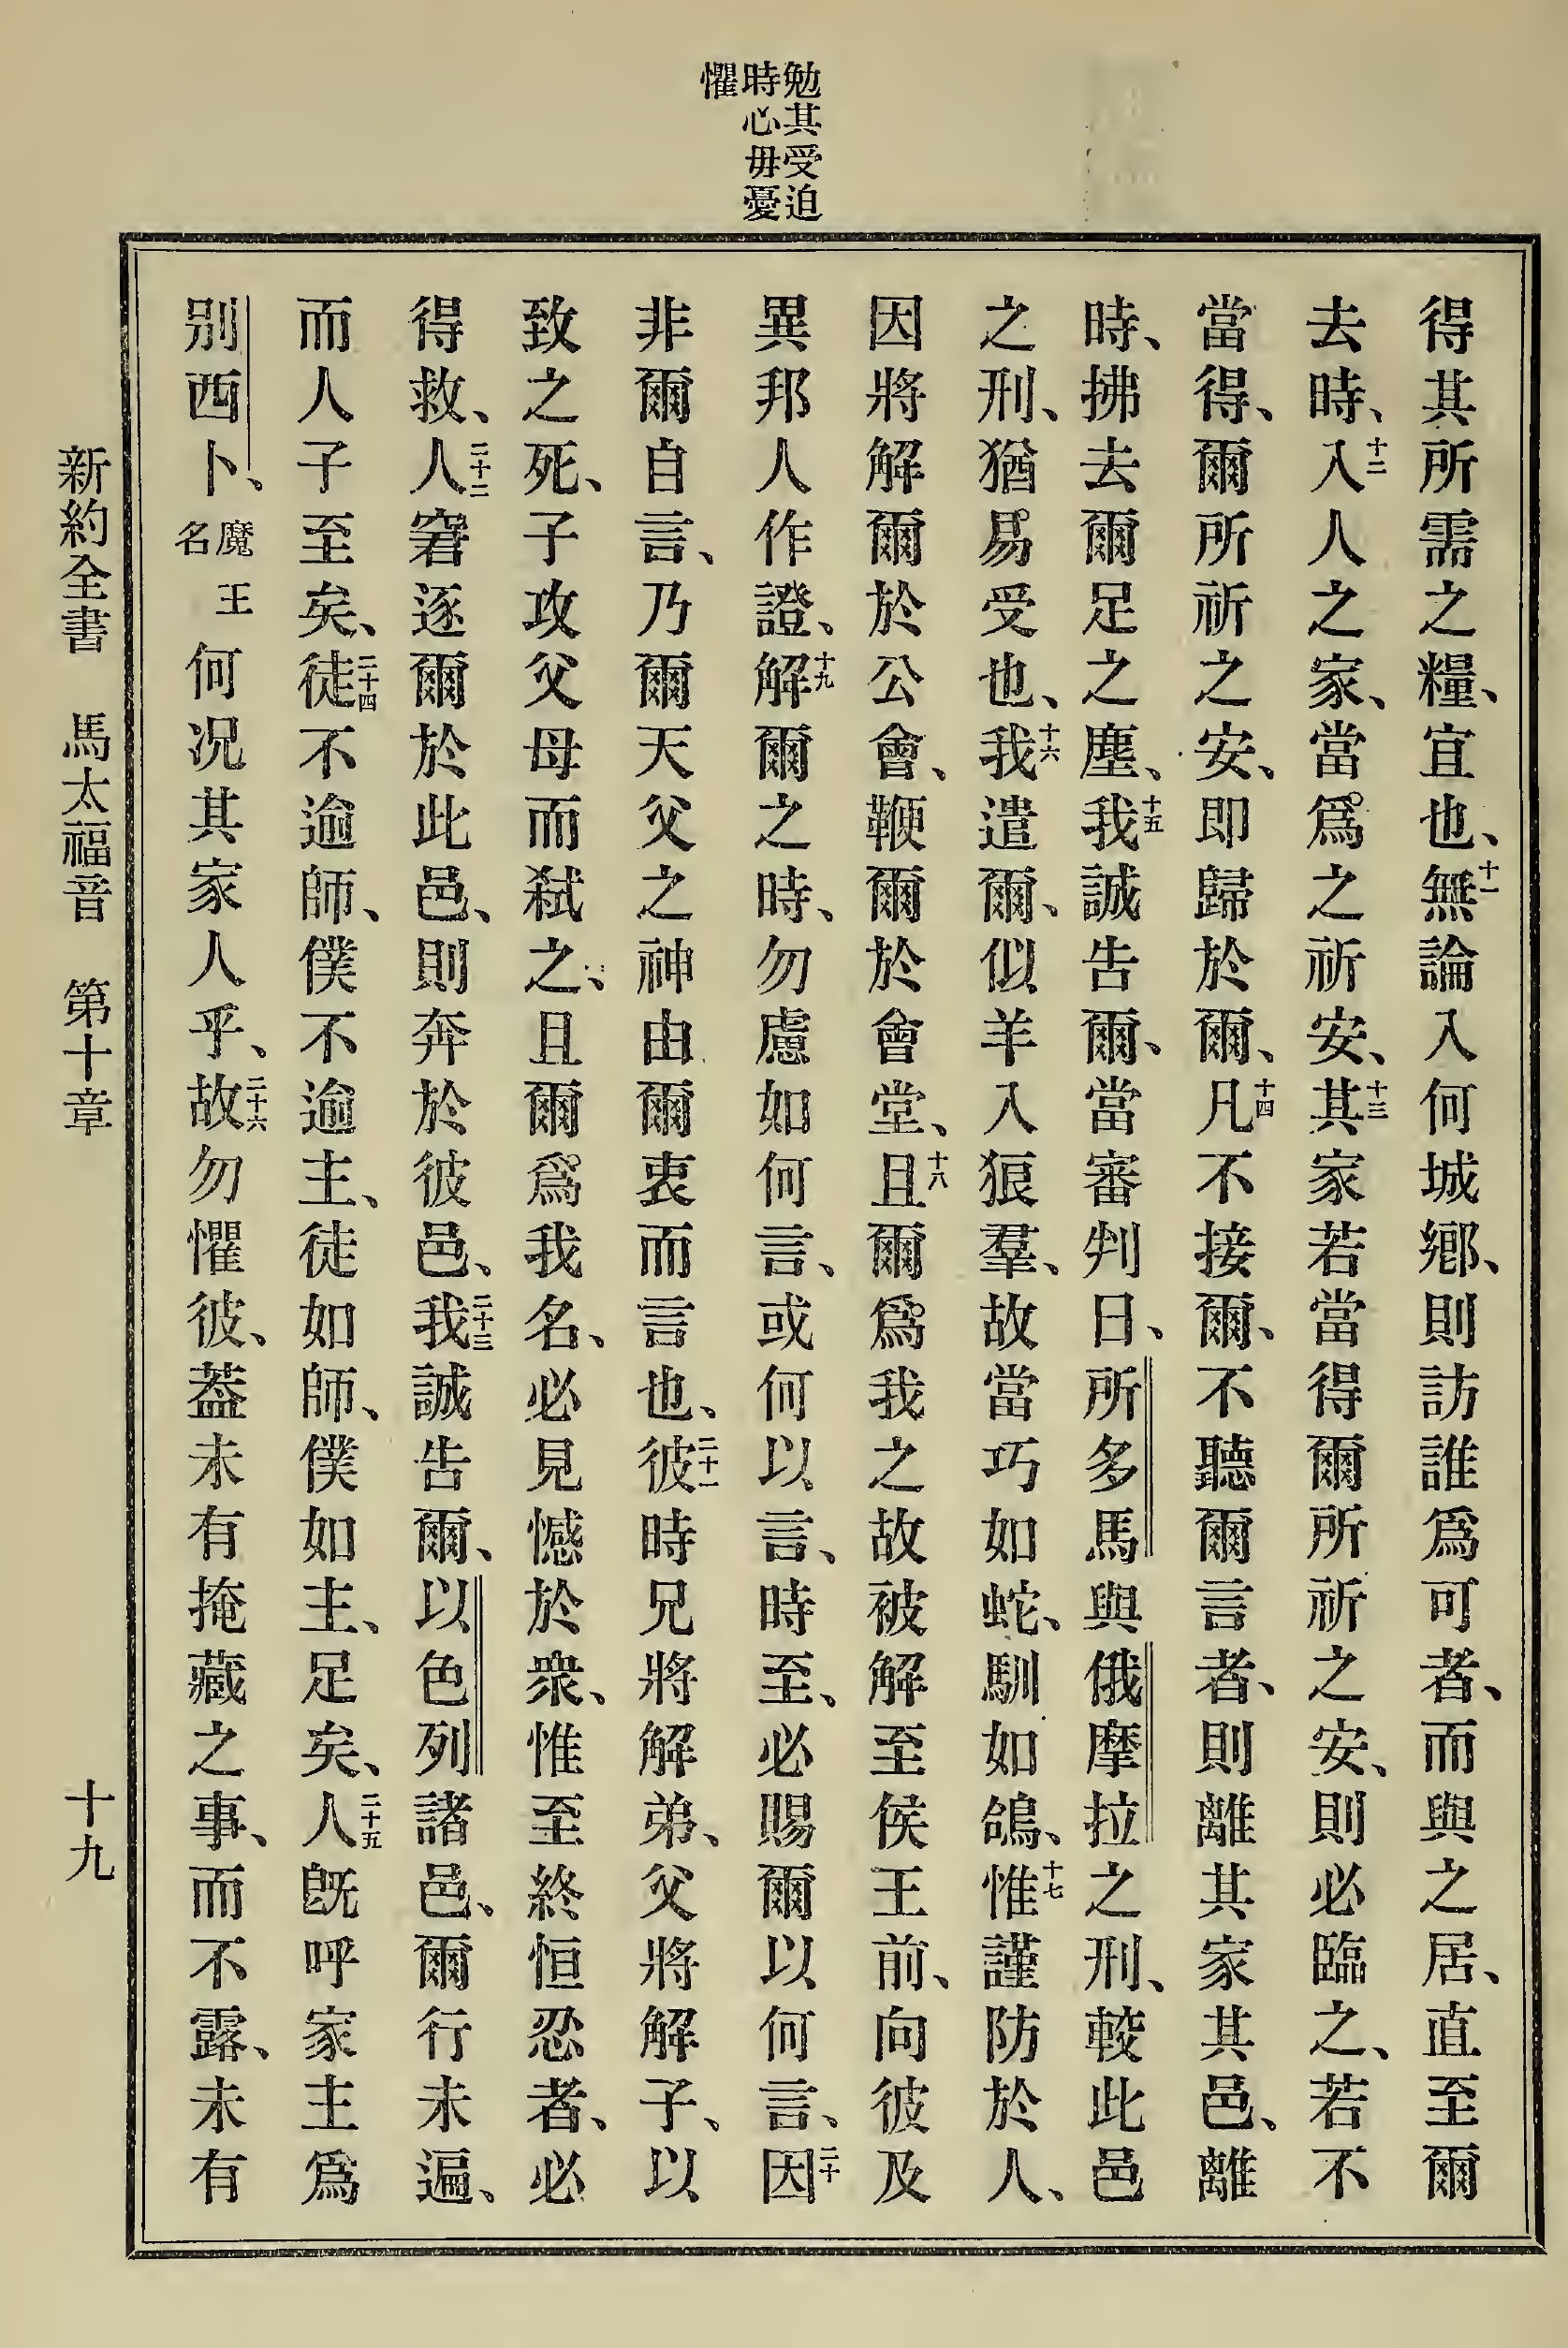 勉其受迫
時心毋憂
懼
得其所需之糧、宜也、十一無論入何城鄕、則訪誰爲可者、而與之居、直至爾
去時、十二入人之家、當爲之祈安、十三其家若當得爾所祈之安、則必臨之、若不
當得、爾所祈之安、即歸於爾、十四凡不接爾、不聽爾言者、則離其家其邑、離
時、拂去爾足之塵、十五我誠告爾、當審判日、所多馬與俄摩拉之刑、較此邑
之刑、猶易受也、十六我遣爾、似羊入狼羣、故當巧如蛇、馴如鴿、十七惟謹防於人、
因將解爾於公會、鞭爾於會堂、十八且爾爲我之故被解至侯王前、向彼及
異邦人作證、十九解爾之時、勿慮如何言、或何以言、時至、必賜爾以何言、二十因
非爾自言、乃爾天父之神由爾衷而言也、二十一彼時兄將解弟、父將解子、以
致之死、子攻父母而弒之、且爾爲我名、必見憾於衆、惟至終恒忍者、必
得救、二十二人窘逐爾於此邑、則奔於彼邑、二十三我誠告爾、以色列諸邑、爾行未遍、
而人子至矣、二十四徒不逾師、僕不逾主、徒如師、僕如主、足矣、二十五人旣呼家主爲
别西卜、魔王名何况其家人乎、二十六故勿懼彼、葢未有掩藏之事、而不露、未有
新約全書 馬太福音 第十章 十九